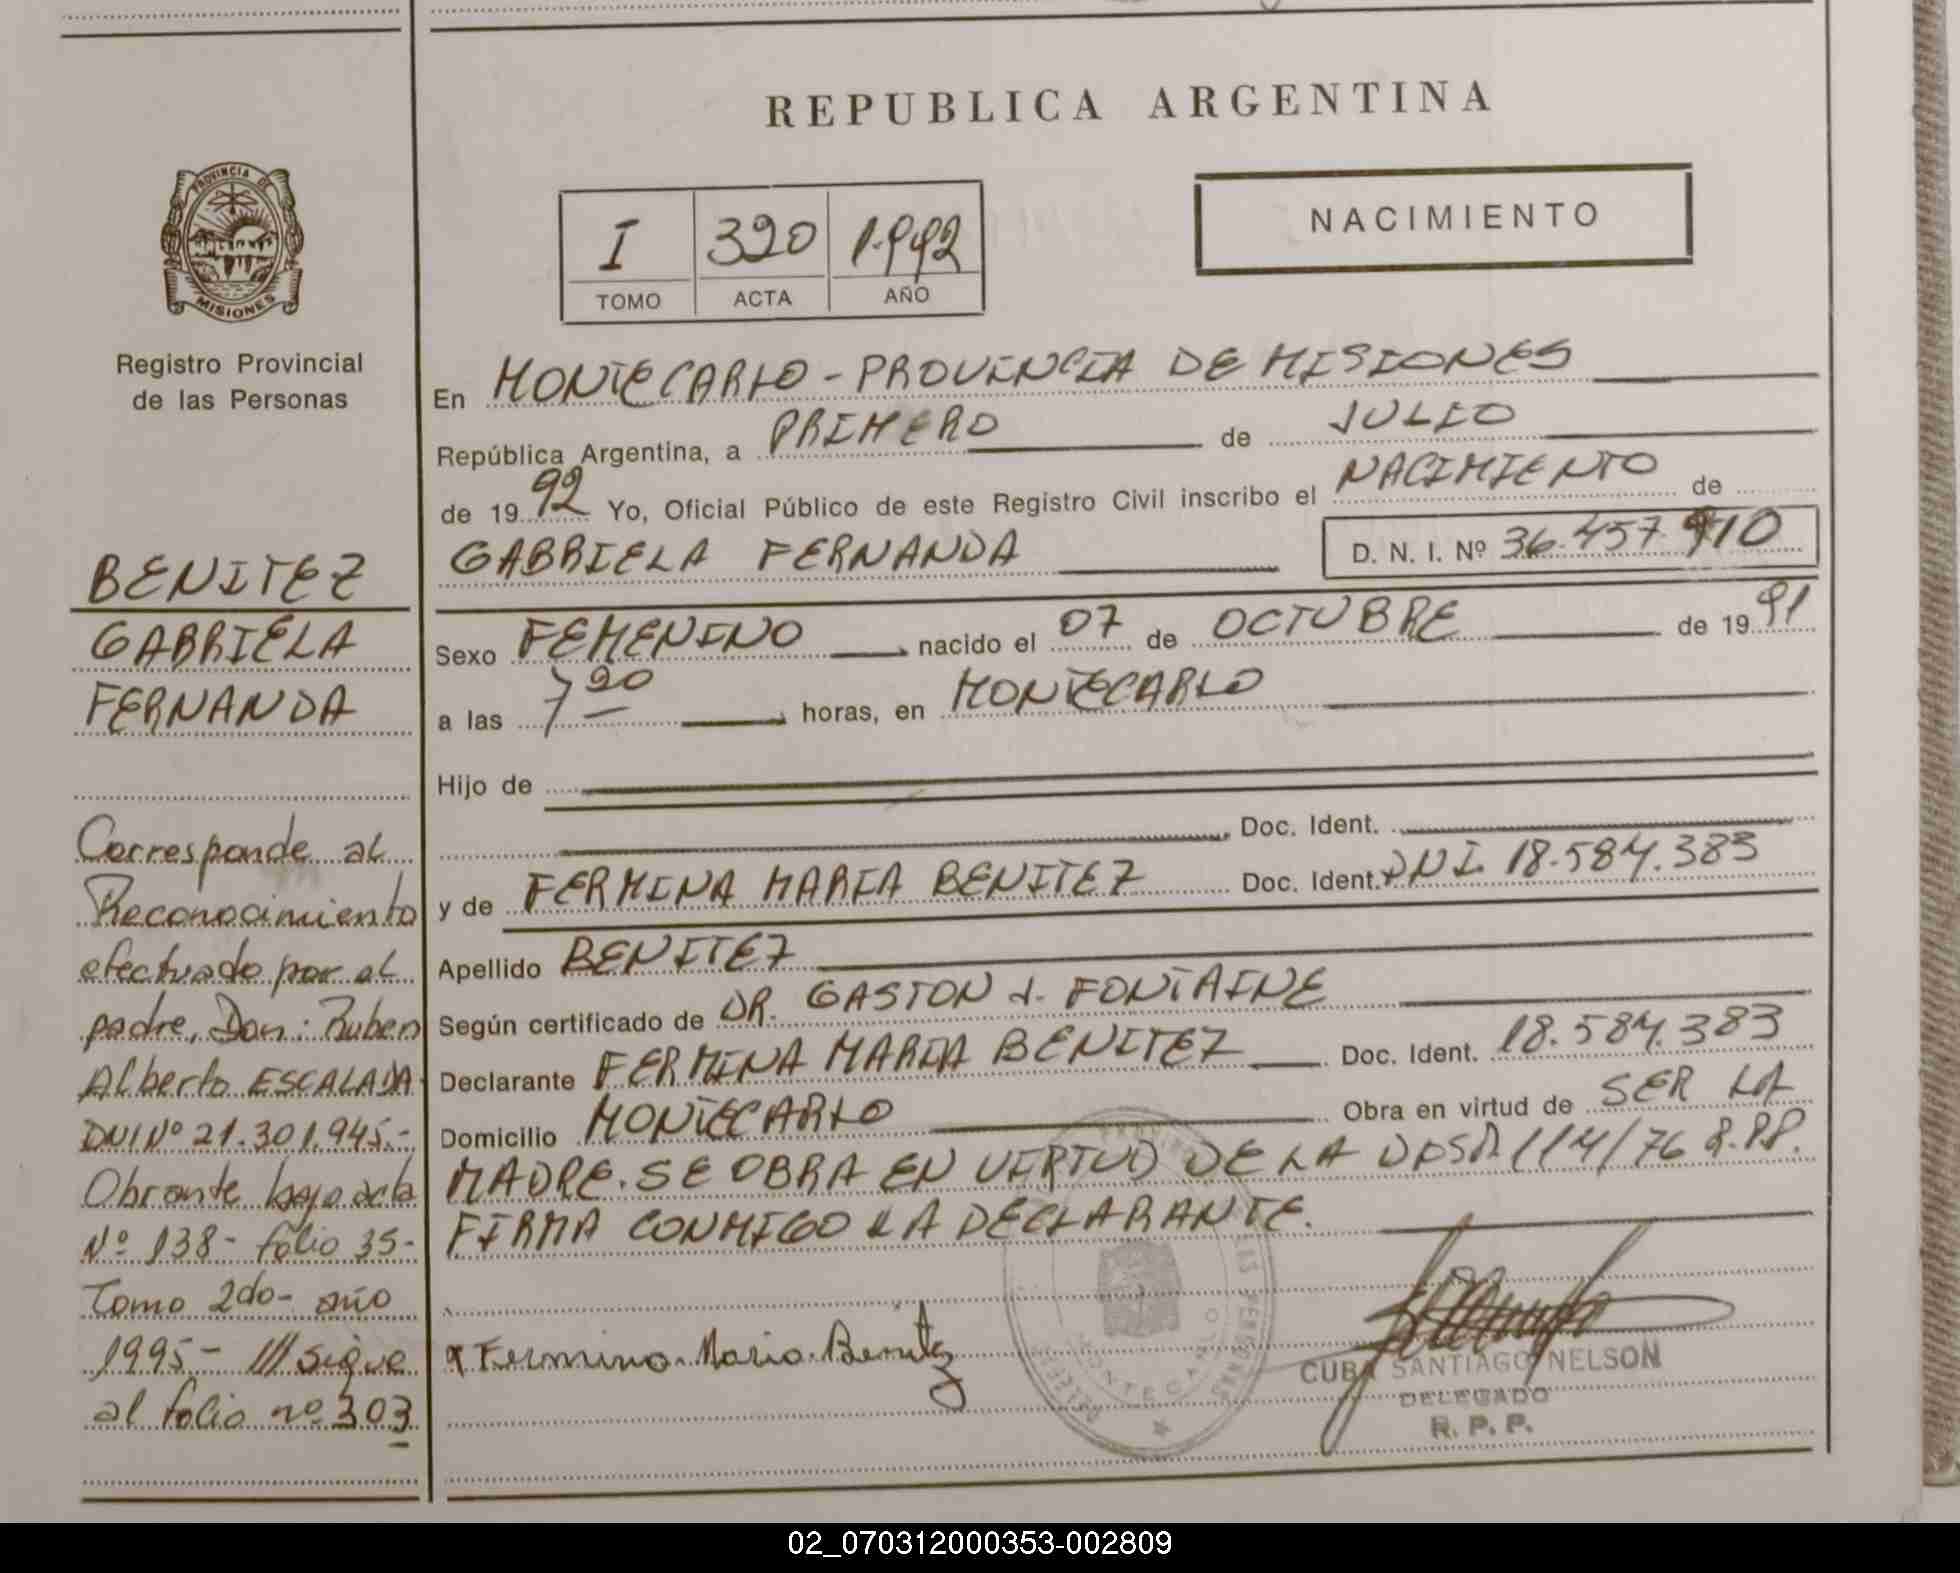 REPUBLICA ARGENTINA
PROVINCIA DE
MISIONES
Registro Provincial
de las Personas
I 320 1.992
TOMO ACTA AÑO
NACIMIENTO
En MONTECARLO - PROVINCIA DE MISIONES
República Argentina, a PRIMERO de JULIO
de 1992 Yo, Oficial Público de este Registro Civil inscribo el NACIMIENTO de
GABRIELA FERNANDA D. N. I. Nº 36.457.910
Sexo FEMENINO, nacido el 07 de OCTUBRE de 1991
a las 7 20, horas, en MONTECARLO
Hijo de
, Doc. Ident.
y de FERMINA MARIA BENITEZ Doc. Ident. DNI. 18.584.383
Apellido BENITEZ
Según certificado de DR. GASTON J. FONTAINE
Declarante FERMINA MARIA BENITEZ Doc. Ident. 18.584.383
Domicilio MONTECARLO Obra en virtud de SER LA
MADRE. SE OBRA EN VIRTUD DE LA DISP. 114/76 R.PP.
FIRMA CONMIGO LA DECLARANTE.
x Fermina. Maria. Benitez
MONTECARLO
CUBA SANTIAGO NELSON
DELEGADO
R. P. P.
BENITEZ
GABRIELA
FERNANDA
Corresponde al
Reconocimiento
efectuado por el
padre, Don: Ruben
Alberto ESCALADA
DNI Nº 21.301.945.-
Obrante bajo acta
Nº 138- folio 35-
Tomo 2do- año
1995- /// sigue
al folio nº 303
02_070312000353-002809